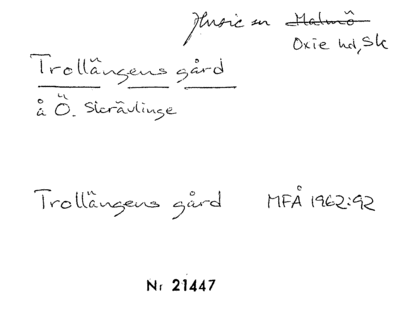 Husie sn Malmö
Oxie hd, Sk
Trollängens gård
å Ö. Skrävlinge
Trollängens gård MFÅ 1962:92
Nr 21447